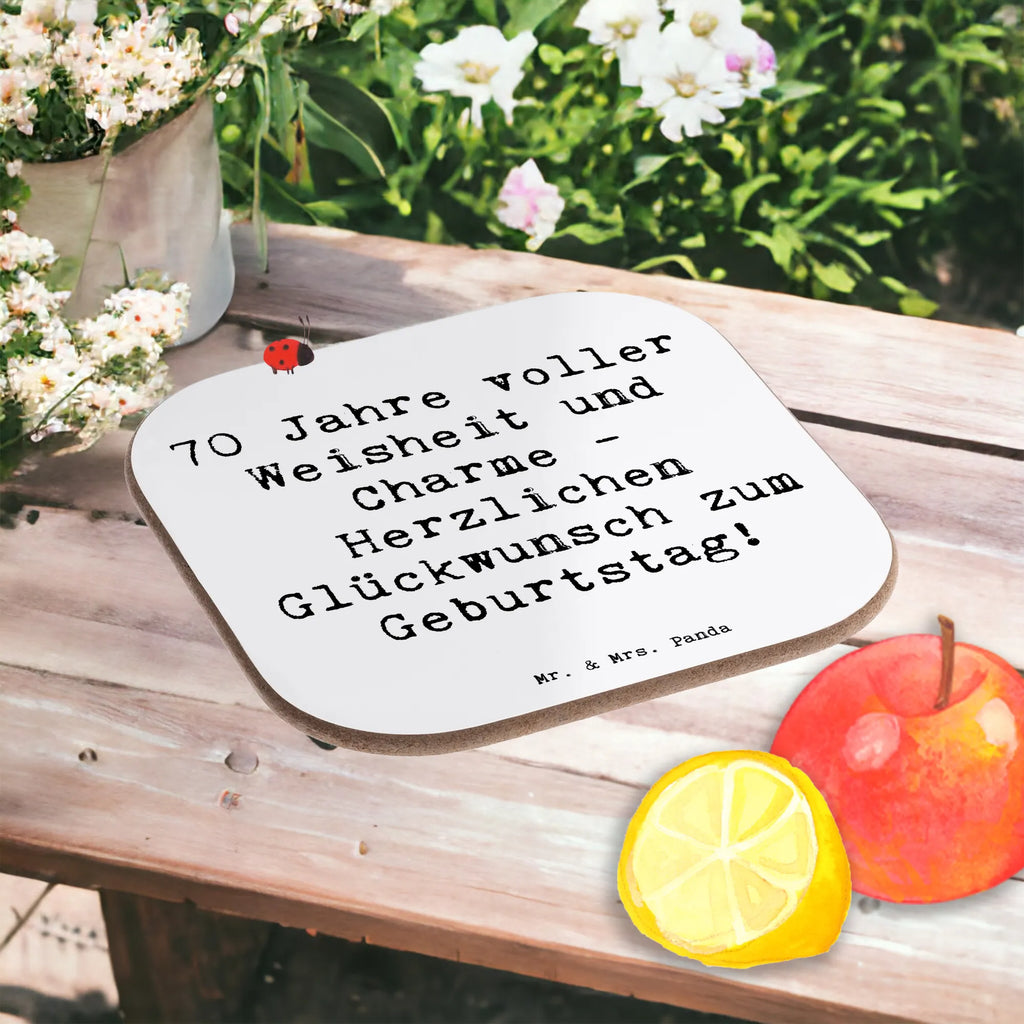 70 Jahre voller
Weisheit und
Charme -
Herzlichen
Glückwunsch zum
Geburtstag!
Mr. & Mrs. Panda